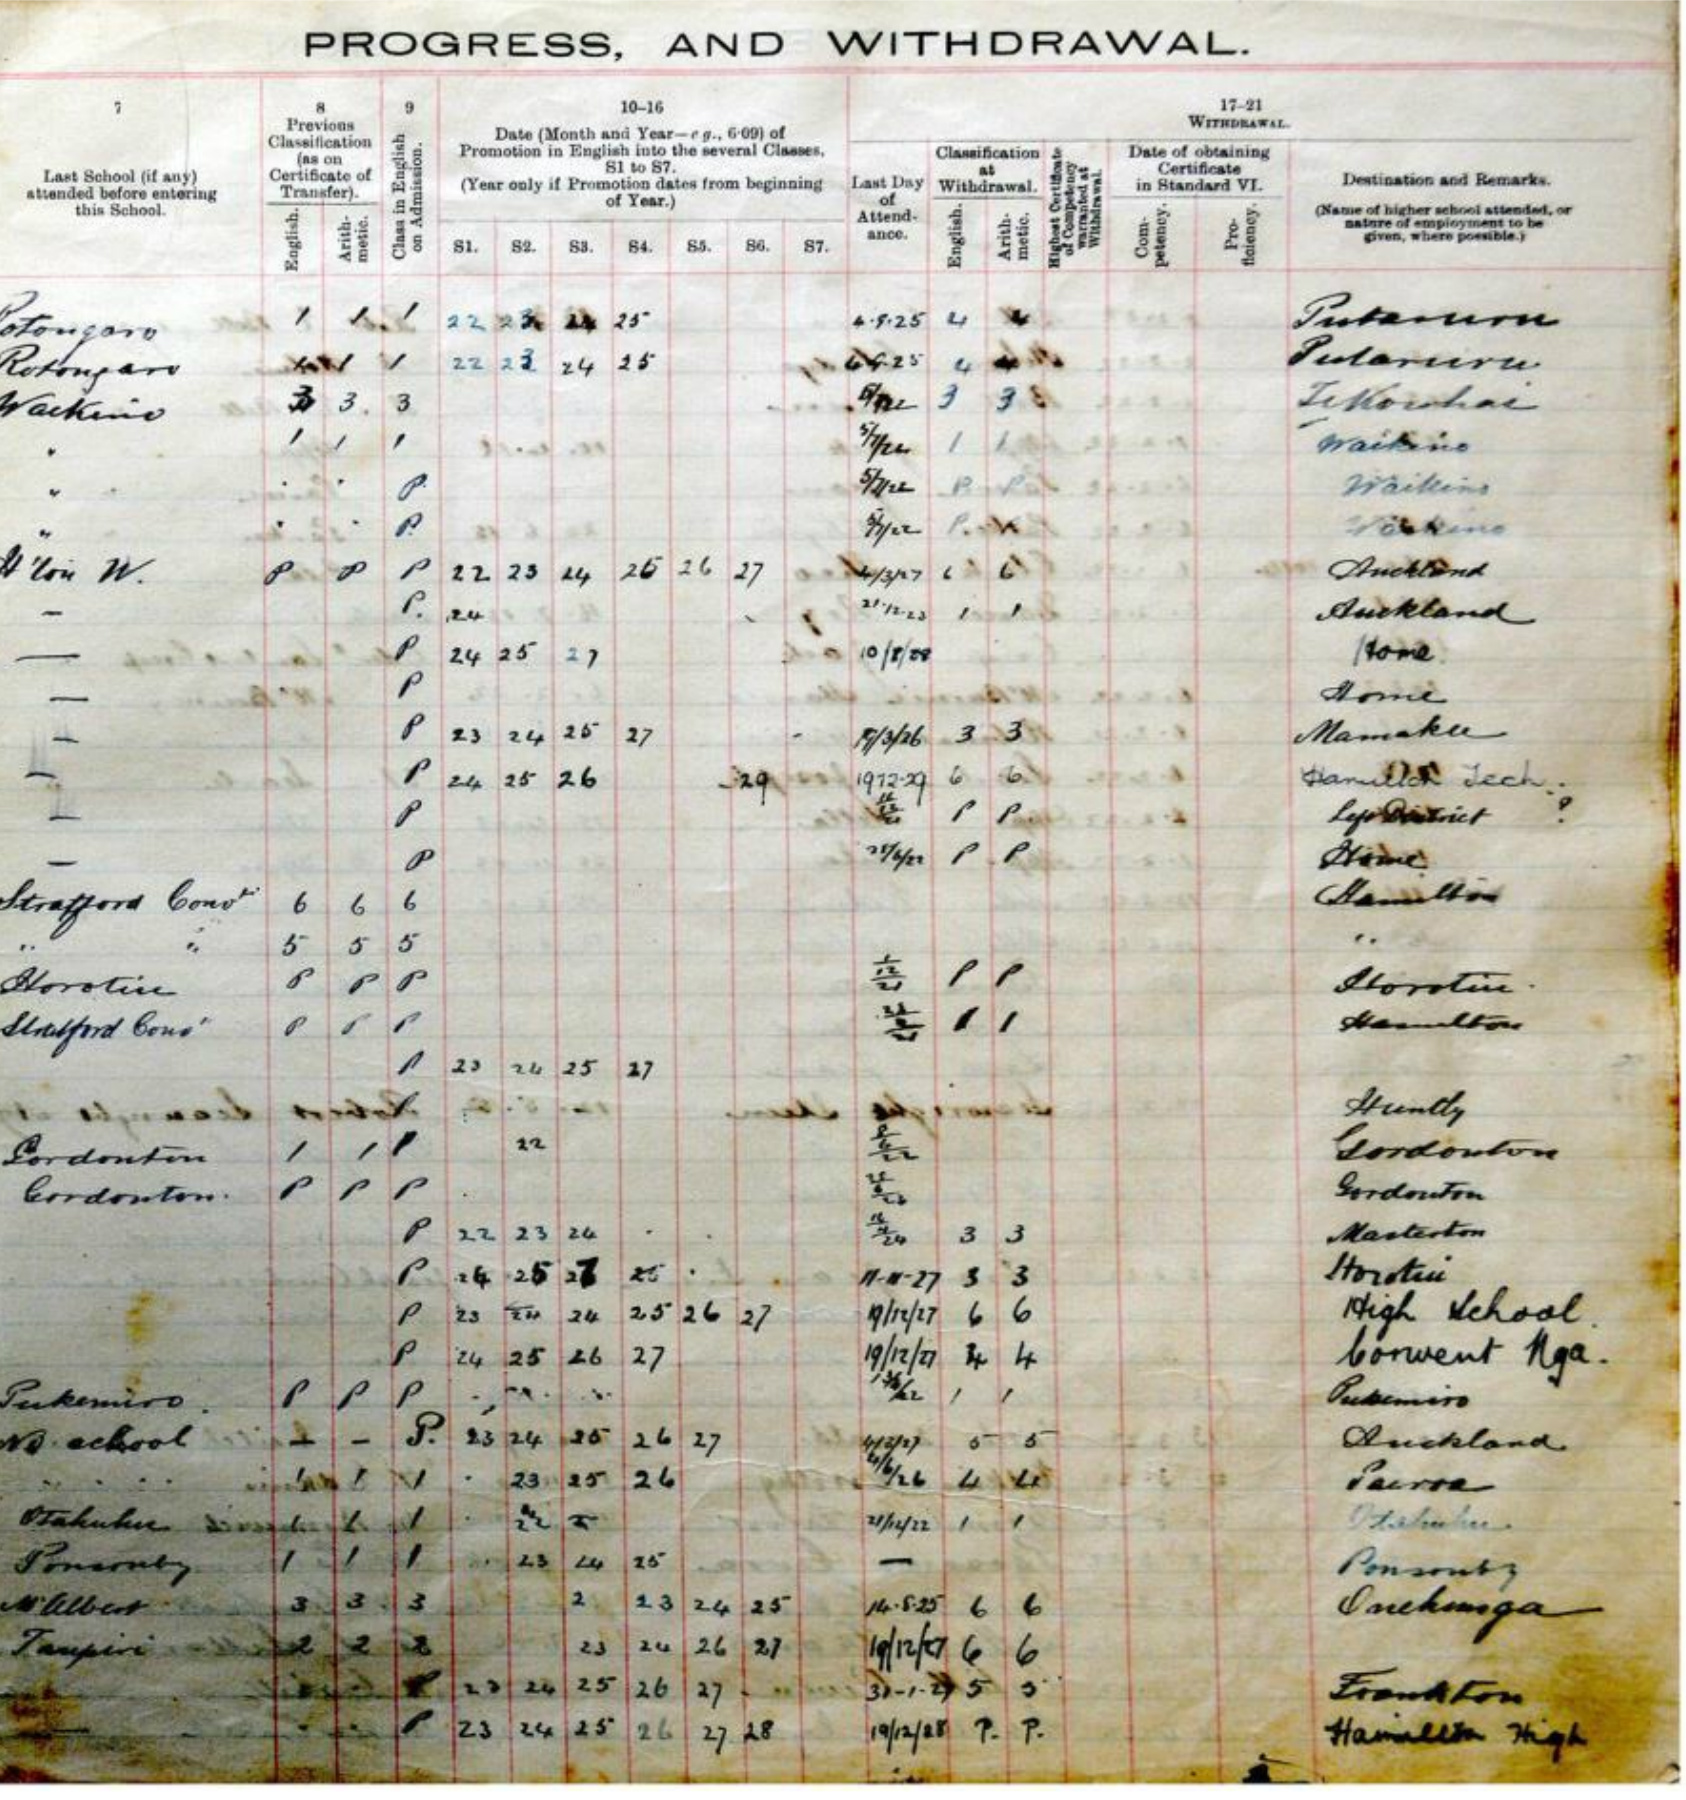 PROGRESS, AND WITHDRAWAL.
7
Last School (if any) attended before entering this School.
8
Previous Classification (as on Certificate of Transfer).
English.
Arithmetic.
9
Class in English on Admission.
10–16
Date (Month and Year—e g., 6·09) of Promotion in English into the several Classes, S1 to S7.
(Year only if Promotion dates from beginning of Year.)
S1. S2. S3. S4. S5. S6. S7.
17–21
WITHDRAWAL.
Last Day of Attendance.
Classification at Withdrawal.
English.
Arithmetic.
Highest Certificate of Competency warranted at Withdrawal.
Date of obtaining Certificate in Standard VI.
Competency.
Proficiency.
Destination and Remarks.
(Name of higher school attended, or nature of employment to be given, where possible.)
1 1 1 22 23 24 25 4·9·25 4 4 Putaruru
Rotongaro 1 1 1 22 23 24 25 25 4 4 Putaruru
Waikino 3 3. 3 3 3 TeKowhai
" 1 1 1 1 1 Waikino
" " " P. P. P. Waikino
" " " P. P. Waikino
H'ton W. P P P 22 23 24 25 26 27 /3/27 6 6 Auckland
— P. 24 21·12·23 1 1 Auckland
— P 24 25 27 10/8/28 Home
— P Home
— P 23 24 25 27 /3/26 3 3 Mamaku
— P 24 25 26 29 1912·29 6 6 Hamilton Tech.
— P P P Left District ?
— P P P Home
Stratford Convt 6 6 6 Hamilton
" " 5 5 5 "
Horotiu P P P 1/12/21 P P Horotiu.
Stratford Conv' P P P 1 1 Hamilton
P 23 24 25 27
Huntly
Gordonton 1 1 1 22 Gordonton
Gordonton. P P P Gordonton
P 22 23 24 24 3 3 Masterton
P 24 25 27 25 11-11-27 3 3 Horotiu
P 23 24 24 25 26 27 19/12/27 6 6 High School.
P 24 25 26 27 19/12/27 4 4 Convent Nga.
Pukemiro. P P P 22 1 1 Pukemiro
No school – – P. 23 24 25 26 27 27 5 5 Auckland
" " " 1 1 1 23 25 26 /6/26 4 4 Paeroa
Otahuhu 1 1 1 22 21/12/22 1 1 Otahuhu.
Ponsonby 1 1 1 23 24 25 — Ponsonby
Mt Albert 3 3 3 2 23 24 25 14·8·25 6 6 Onehunga
Taupiri 2 2 2 23 24 26 27 19/12/27 6 6
P 23 24 25 26 27 5 5 Frankton
— P 23 24 25 26 27 28 19/12/28 P. P. Hamilton High